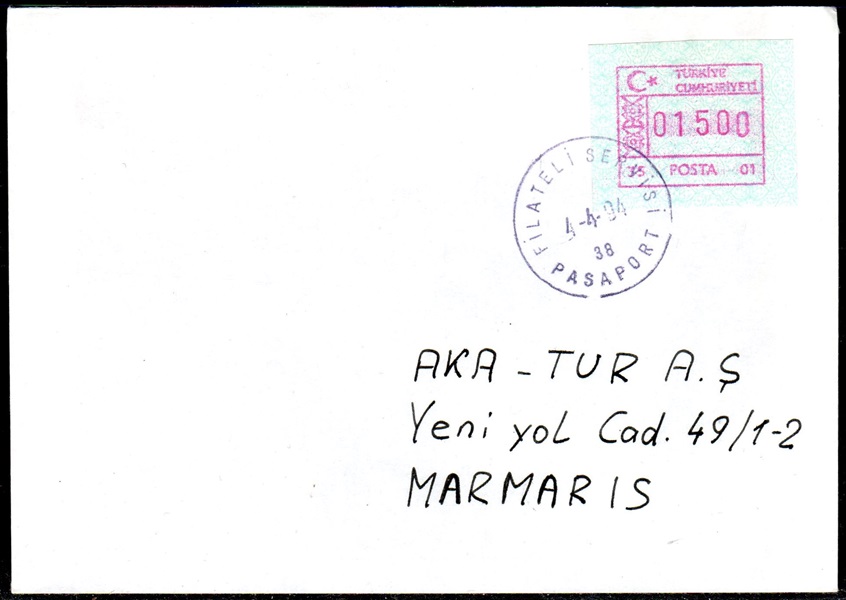 TÜRKİYE
CUMHURİYETİ
01500
35 POSTA 01
FİLATELİ SERVİSİ
4-4-94
38
PASAPORT
AKA - TUR A.Ş
Yeni yol Cad. 49/1-2
MARMARIS